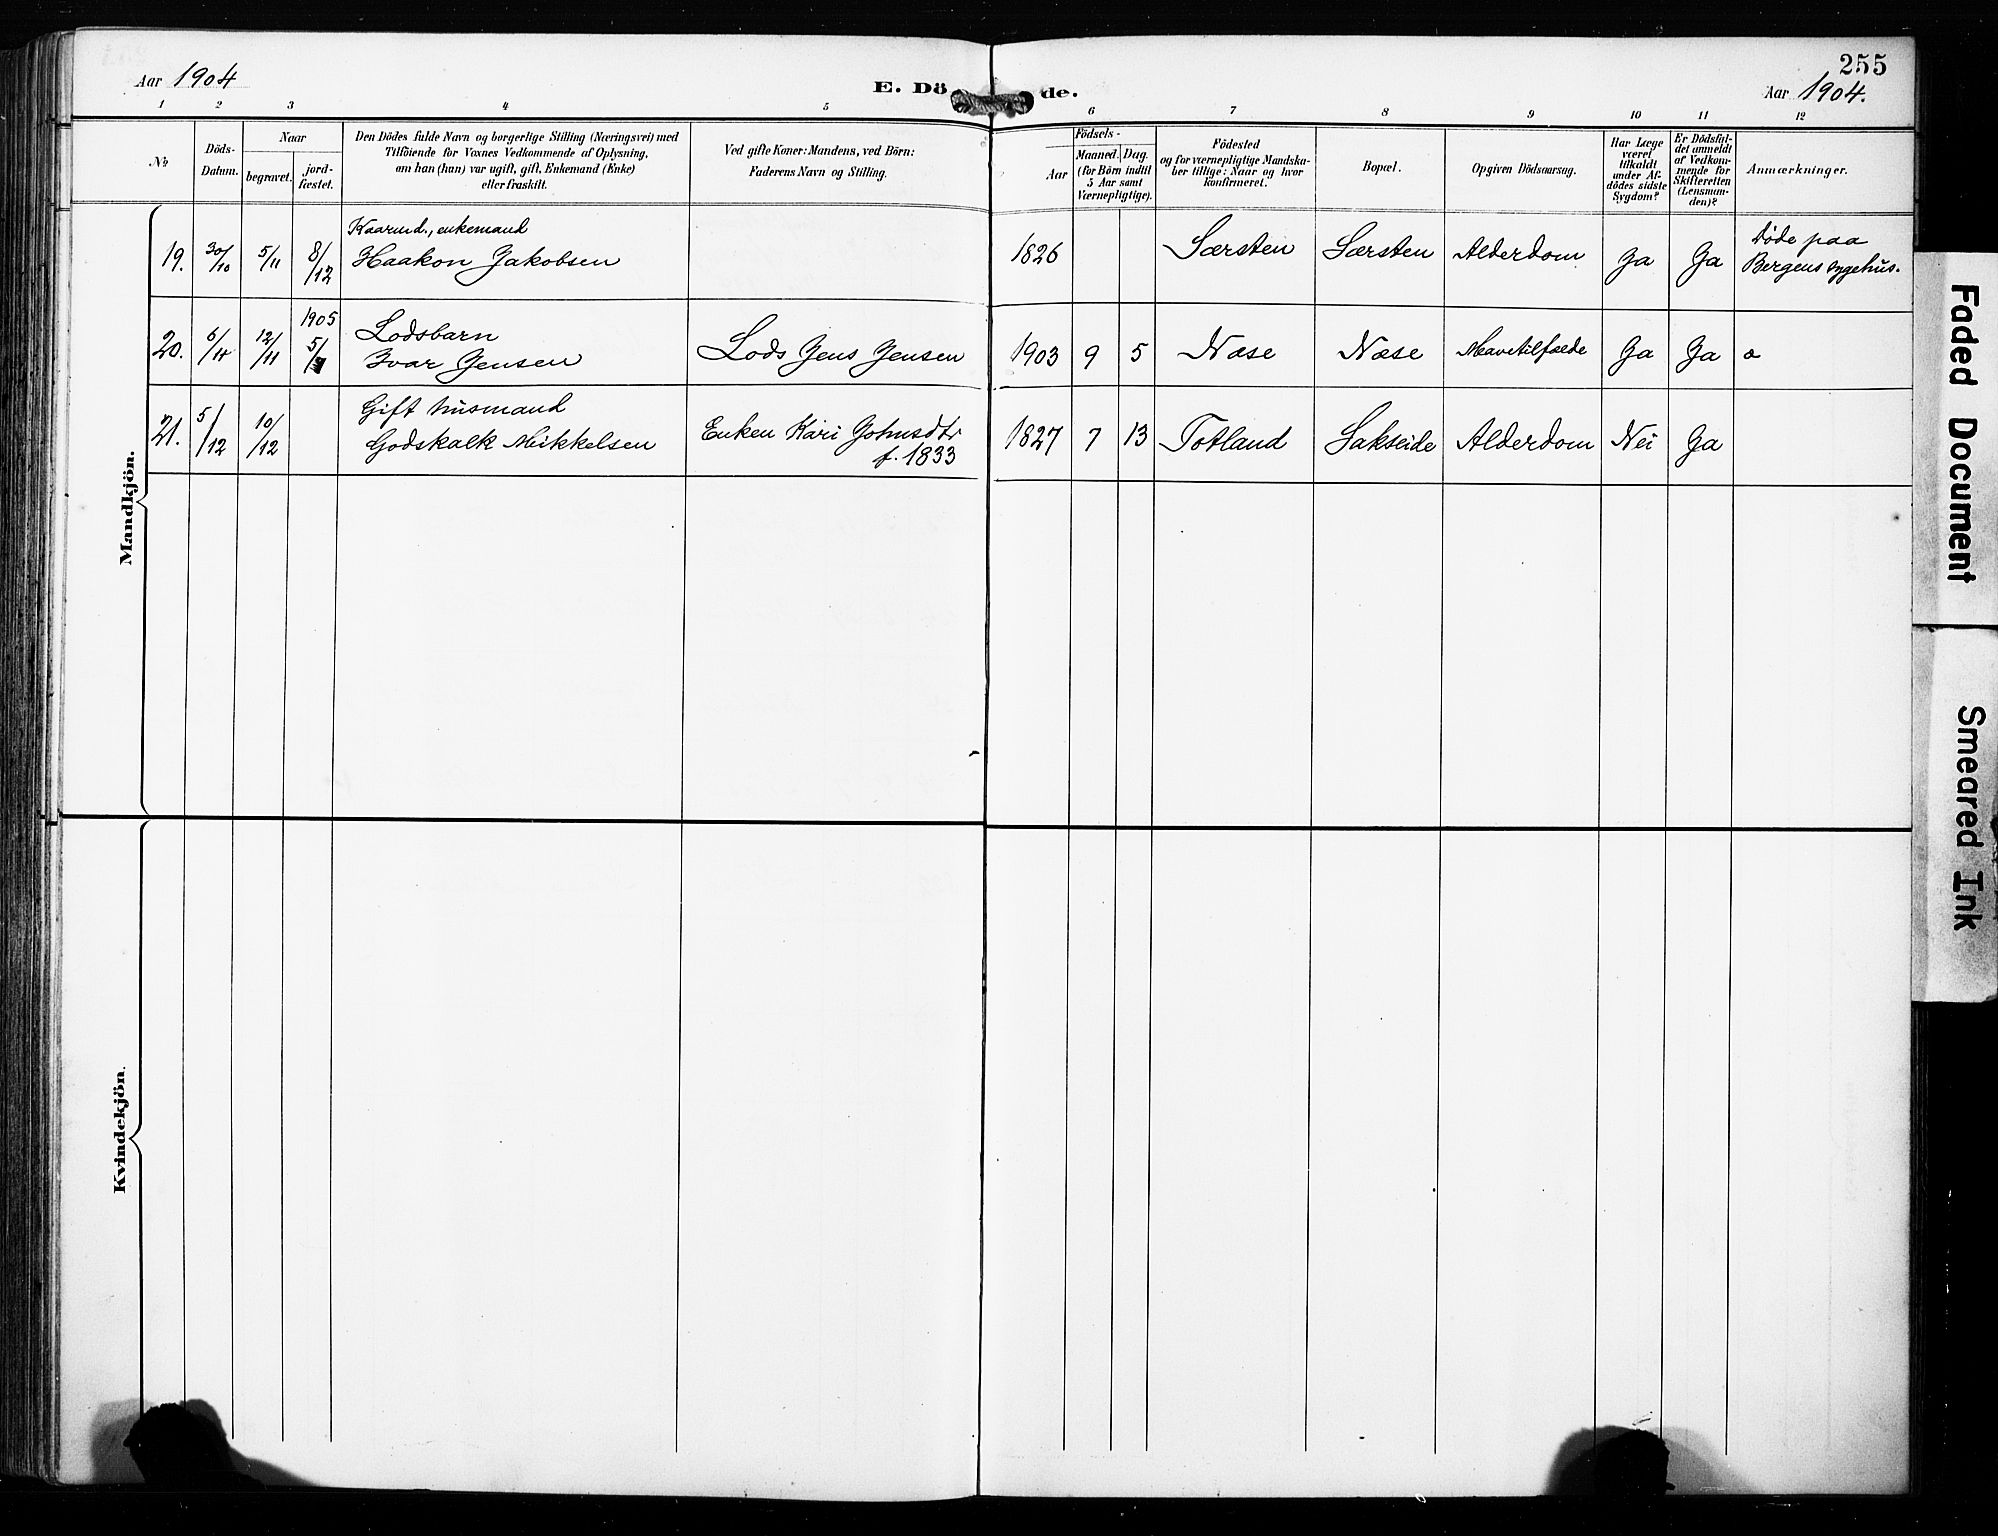 255
Aar 1904
E. Dö de.
Aar 1904.
1 2 3 4 5 6 7 8 9 10 11 12
No
Döds-
Datum.
Naar
begravet.
jord-
fæstet.
Den Dödes fulde Navn og borgerlige Stilling (Næringsvei) med
Tilföiende for Voxnes Vedkommende af Oplysning,
om han (hun) var ugift, gift, Enkemand (Enke)
eller fraskilt.
Ved gifte Koner: Mandens, ved Börn:
Faderens Navn og Stilling.
Födsels-
Aar
Maaned. Dag.
(for Börn indtil
5 Aar samt
Værnepligtige).
Födested
og for værnepligtige Mandska-
ber tillige: Naar og hvor
konfirmeret.
Bopæl.
Opgiven Dödsaarsag.
Har Læge
været
tilkaldt
under Af-
dödes sidste
Sygdom?
Er Dödsfal-
det anmeldt
af Vedkom-
mende for
Skifteretten
(Lensman-
den)?
Anmærkninger.
Mandkjön.
19. 30/10 5/11 8/12
Kaarmd., enkemand
Haakon Jakobsen
1826 Særsten Særsten Alderdom Ja Ja
Døde paa
Bergens sygehus.
1905
20. 6/11 12/11 5/
Lodsbarn
Ivar Jensen
Lods Jens Jensen 1903 9 5 Næse Næse Mavetilfælde Ja Ja
21. 5/12 10/12
Gift husmand
Godskalk Mikkelsen
Enken Kari Johnsdtr
f. 1833
1827 7 13 Totland Sakseide Alderdom Nei Ja
Kvindekjön.
Faded Document
Smeared Ink